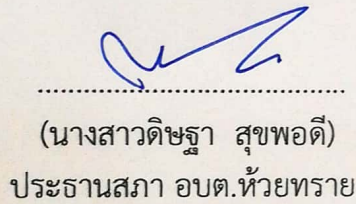 (นางสาวดิษฐา สุขพอดี)
ประธานสภา อบต.ห้วยทราย